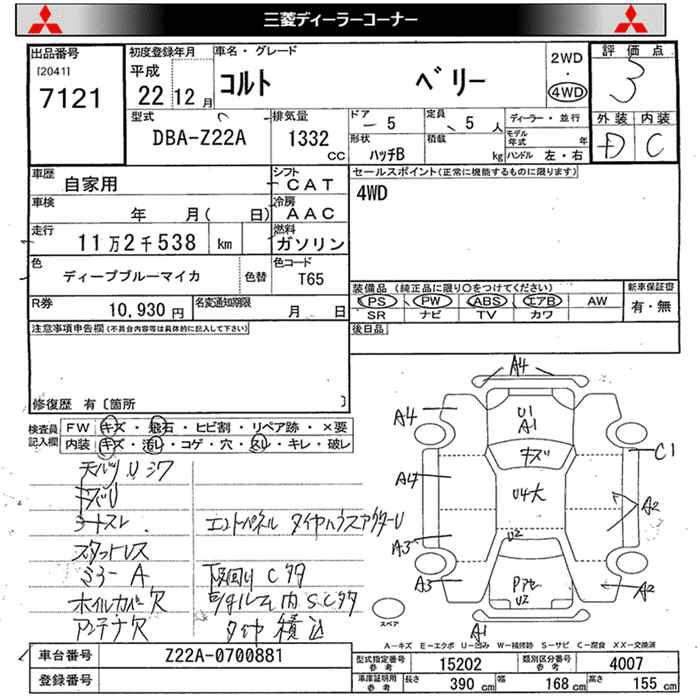 三菱ディーラーコーナー
出品番号
[2041]
7121
初度登録年月
平成
22 12 月
車名・グレード
コルト ベリー
2WD
・
4WD
評価点
3
外装 内装
D C
型式
DBA-Z22A
排気量
1332
cc
ドア
5
定員
5 人
形状
ハッチB
積載
kg
ディーラー・並行
モデル年式 年
ハンドル 左・右
車歴
自家用
シフト
CAT
車検
年 月( 日)
冷房
AAC
走行
11万2千538 km
燃料
ガソリン
色
ディープブルーマイカ
色替
色コード
T65
R券
10,930 円
名変通知期限
月 日
セールスポイント(正常に機能するものに限ります)
4WD
装備品 (純正品に限り○をつけてください)
PS PW ABS エアB AW
SR ナビ TV カワ
新車保証書
有・無
後日品
注意事項申告欄(不具合内容等は具体的に記入して下さい)
修復歴 有[箇所 ]
検査員記入欄
FW キズ・飛石・ヒビ割・リペア跡・×要
内装 キズ・汚レ・コゲ・穴・スレ・キレ・破レ
シートスレ
スタットレス
ミラーA
ホイルカバー欠
アンテナ欠
下回りCタタ
タイヤ積込
A4
A4
U1
A1
キズ
C1
A4
U4大
A2
A3
U2
A3
A2
U2
A1
スペア
A-キズ E-エクボ U-凹み W-補修跡 S-サビ C-腐食 XX-交換済
車台番号
Z22A-0700881
登録番号
型式指定番号
参考
15202
類別区分番号
参考
4007
車庫証明用
参考
長さ 390 cm
幅 168 cm
高さ 155 cm